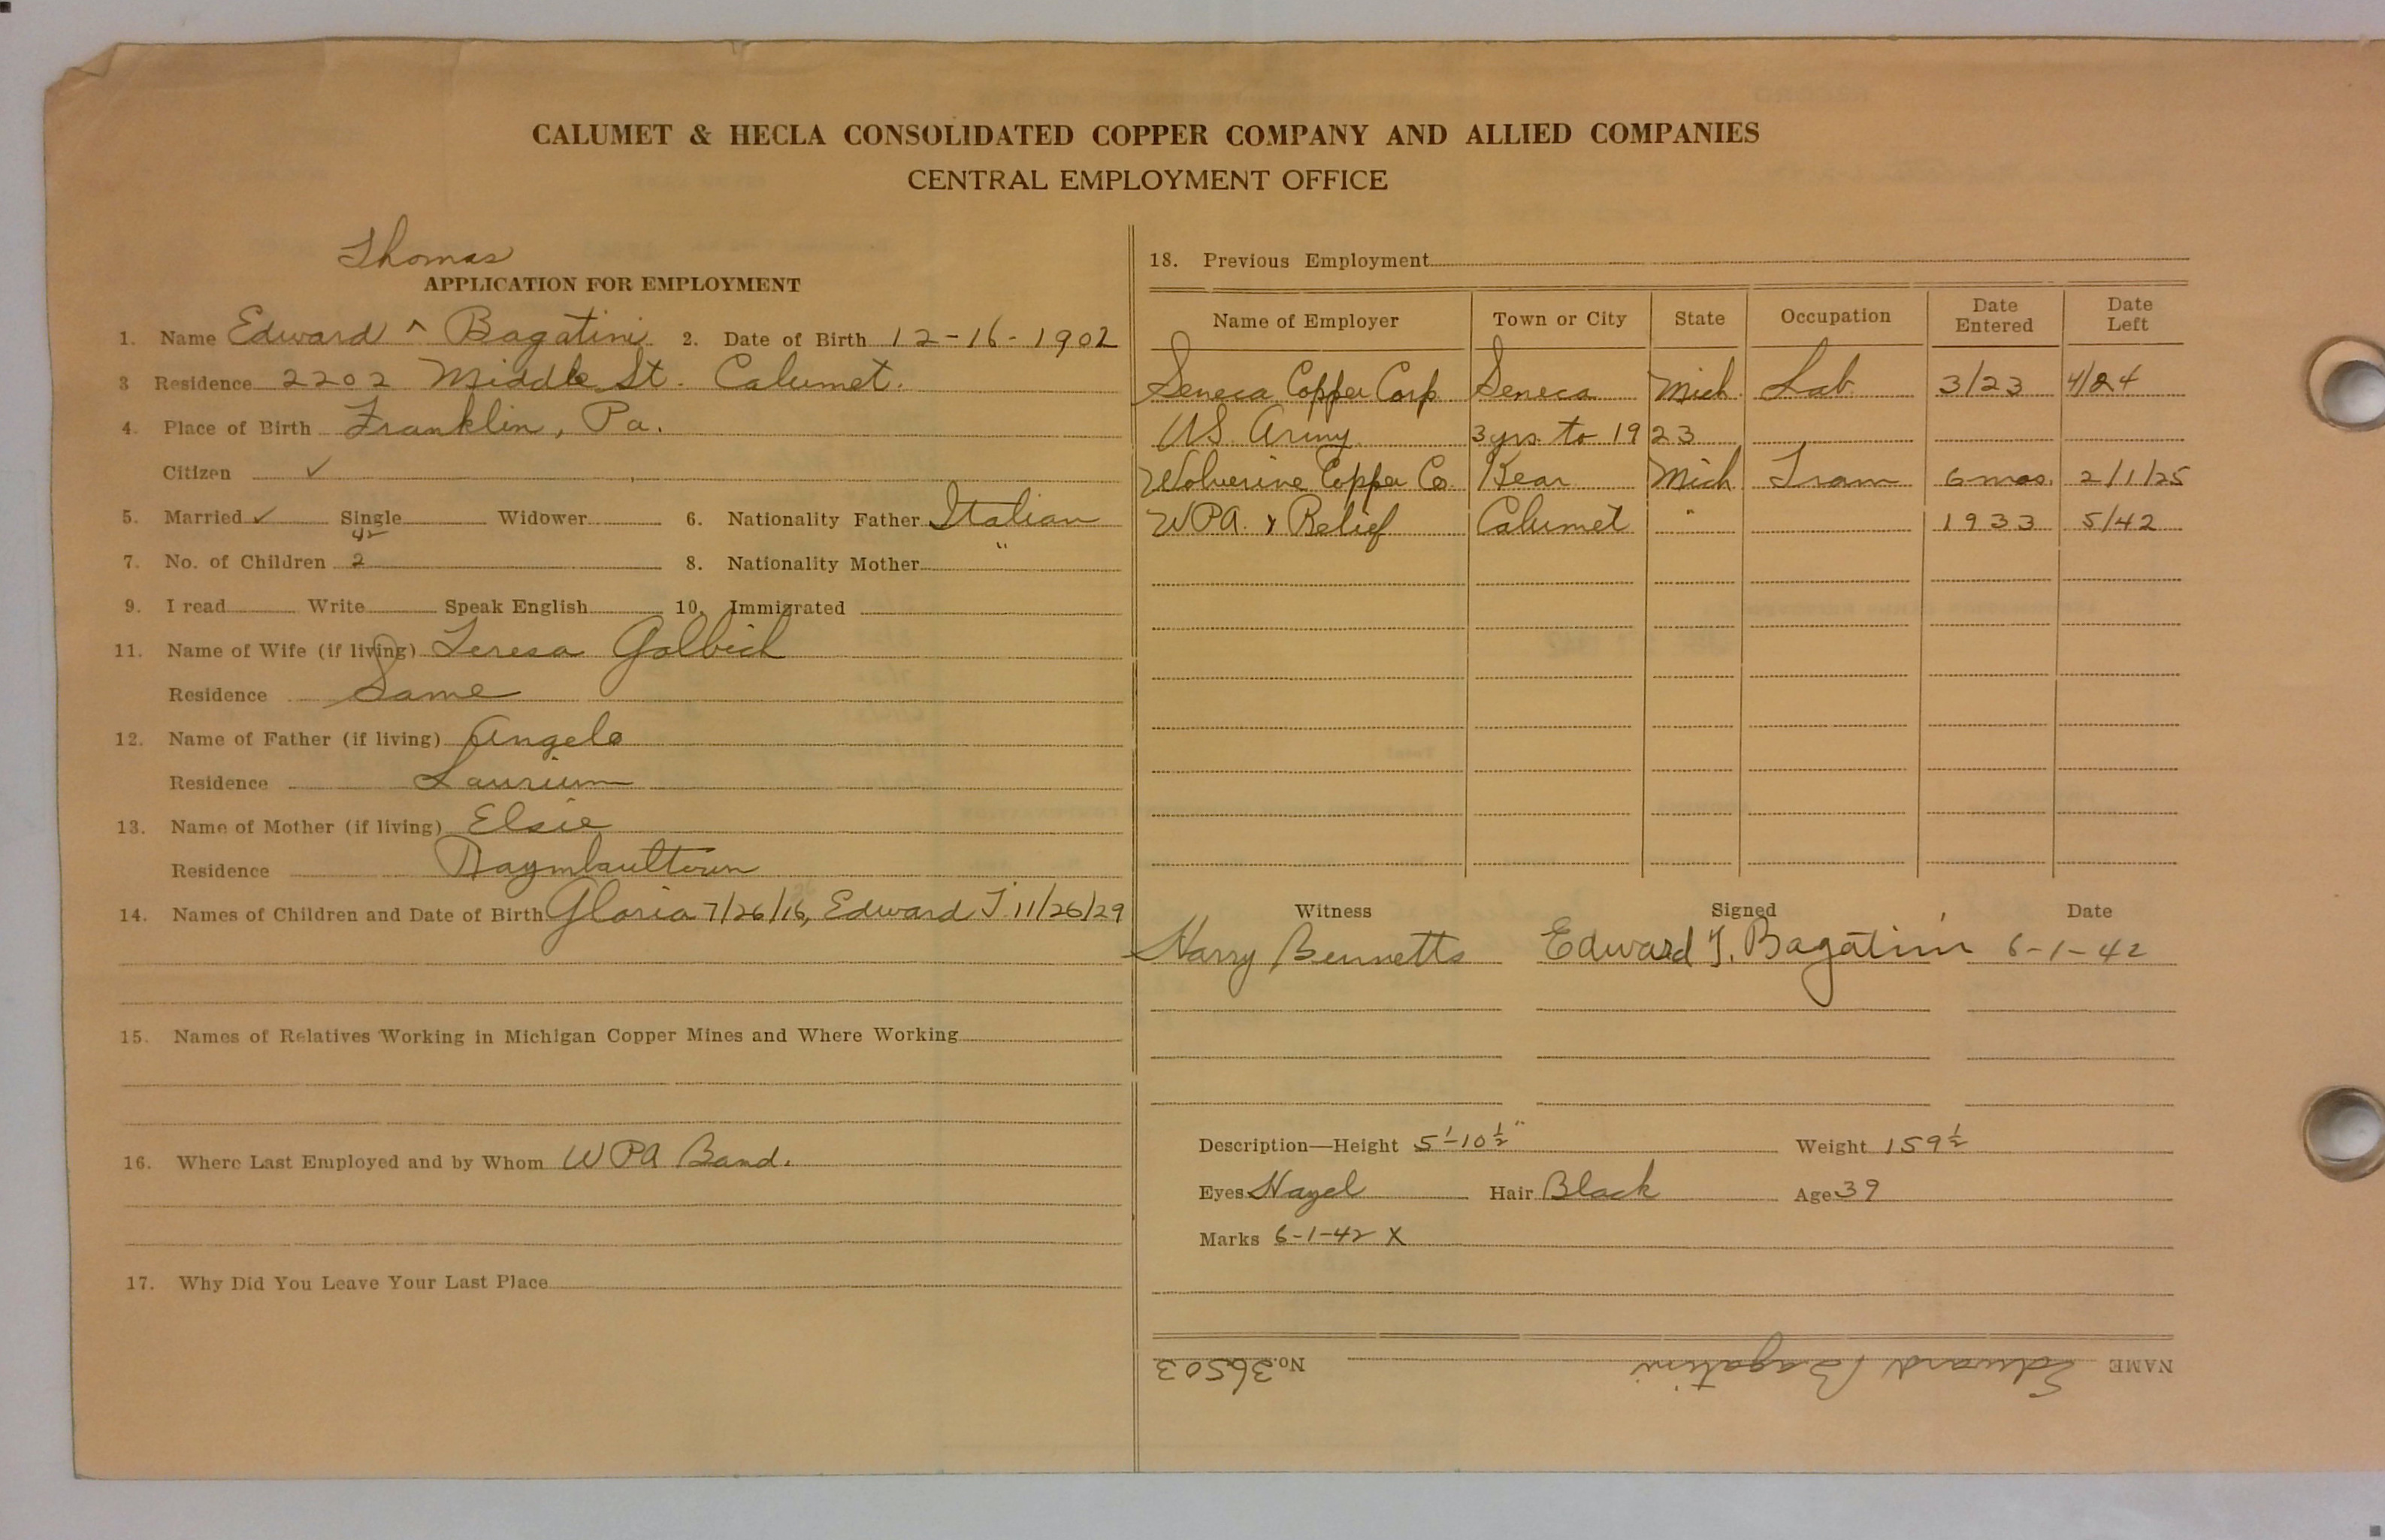 CALUMET & HECLA CONSOLIDATED COPPER COMPANY AND ALLIED COMPANIES
CENTRAL EMPLOYMENT OFFICE
Thomas
APPLICATION FOR EMPLOYMENT
1. Name Edward ^ Bagatini 2. Date of Birth 12-16-1902
3 Residence 2202 Middle St. Calumet.
4. Place of Birth Franklin, Pa.
Citizen ✓
5. Married ✓ Single Widower 6. Nationality Father Italian
7. No. of Children 2 8. Nationality Mother "
9. I read Write Speak English 10. Immigrated
11. Name of Wife (if living) Teresa Golbich
Residence Same
12. Name of Father (if living) Angelo
Residence Laurium
13. Name of Mother (if living) Elsie
Residence Raymbaultown
14. Names of Children and Date of Birth Gloria 7/26/16, Edward T 11/26/29
15. Names of Relatives Working in Michigan Copper Mines and Where Working
16. Where Last Employed and by Whom WPA Band.
17. Why Did You Leave Your Last Place
18. Previous Employment
Name of Employer Town or City State Occupation Date Entered Date Left
Seneca Copper Corp Seneca Mich. Lab. 3/23 4/24
US. Army 3 yrs. to 1923
Wolverine Copper Co Kear Mich. Tram 6 mos. 2/1/25
WPA. & Relief Calumet " 1933 5/42
Witness Signed Date
Harry Bennetts Edward T. Bagatini 6-1-42
Description—Height 5'-10½" Weight 159½
Eyes Hazel Hair Black Age 39
Marks 6-1-42 X
NAME Edward Bagatini No. 36503